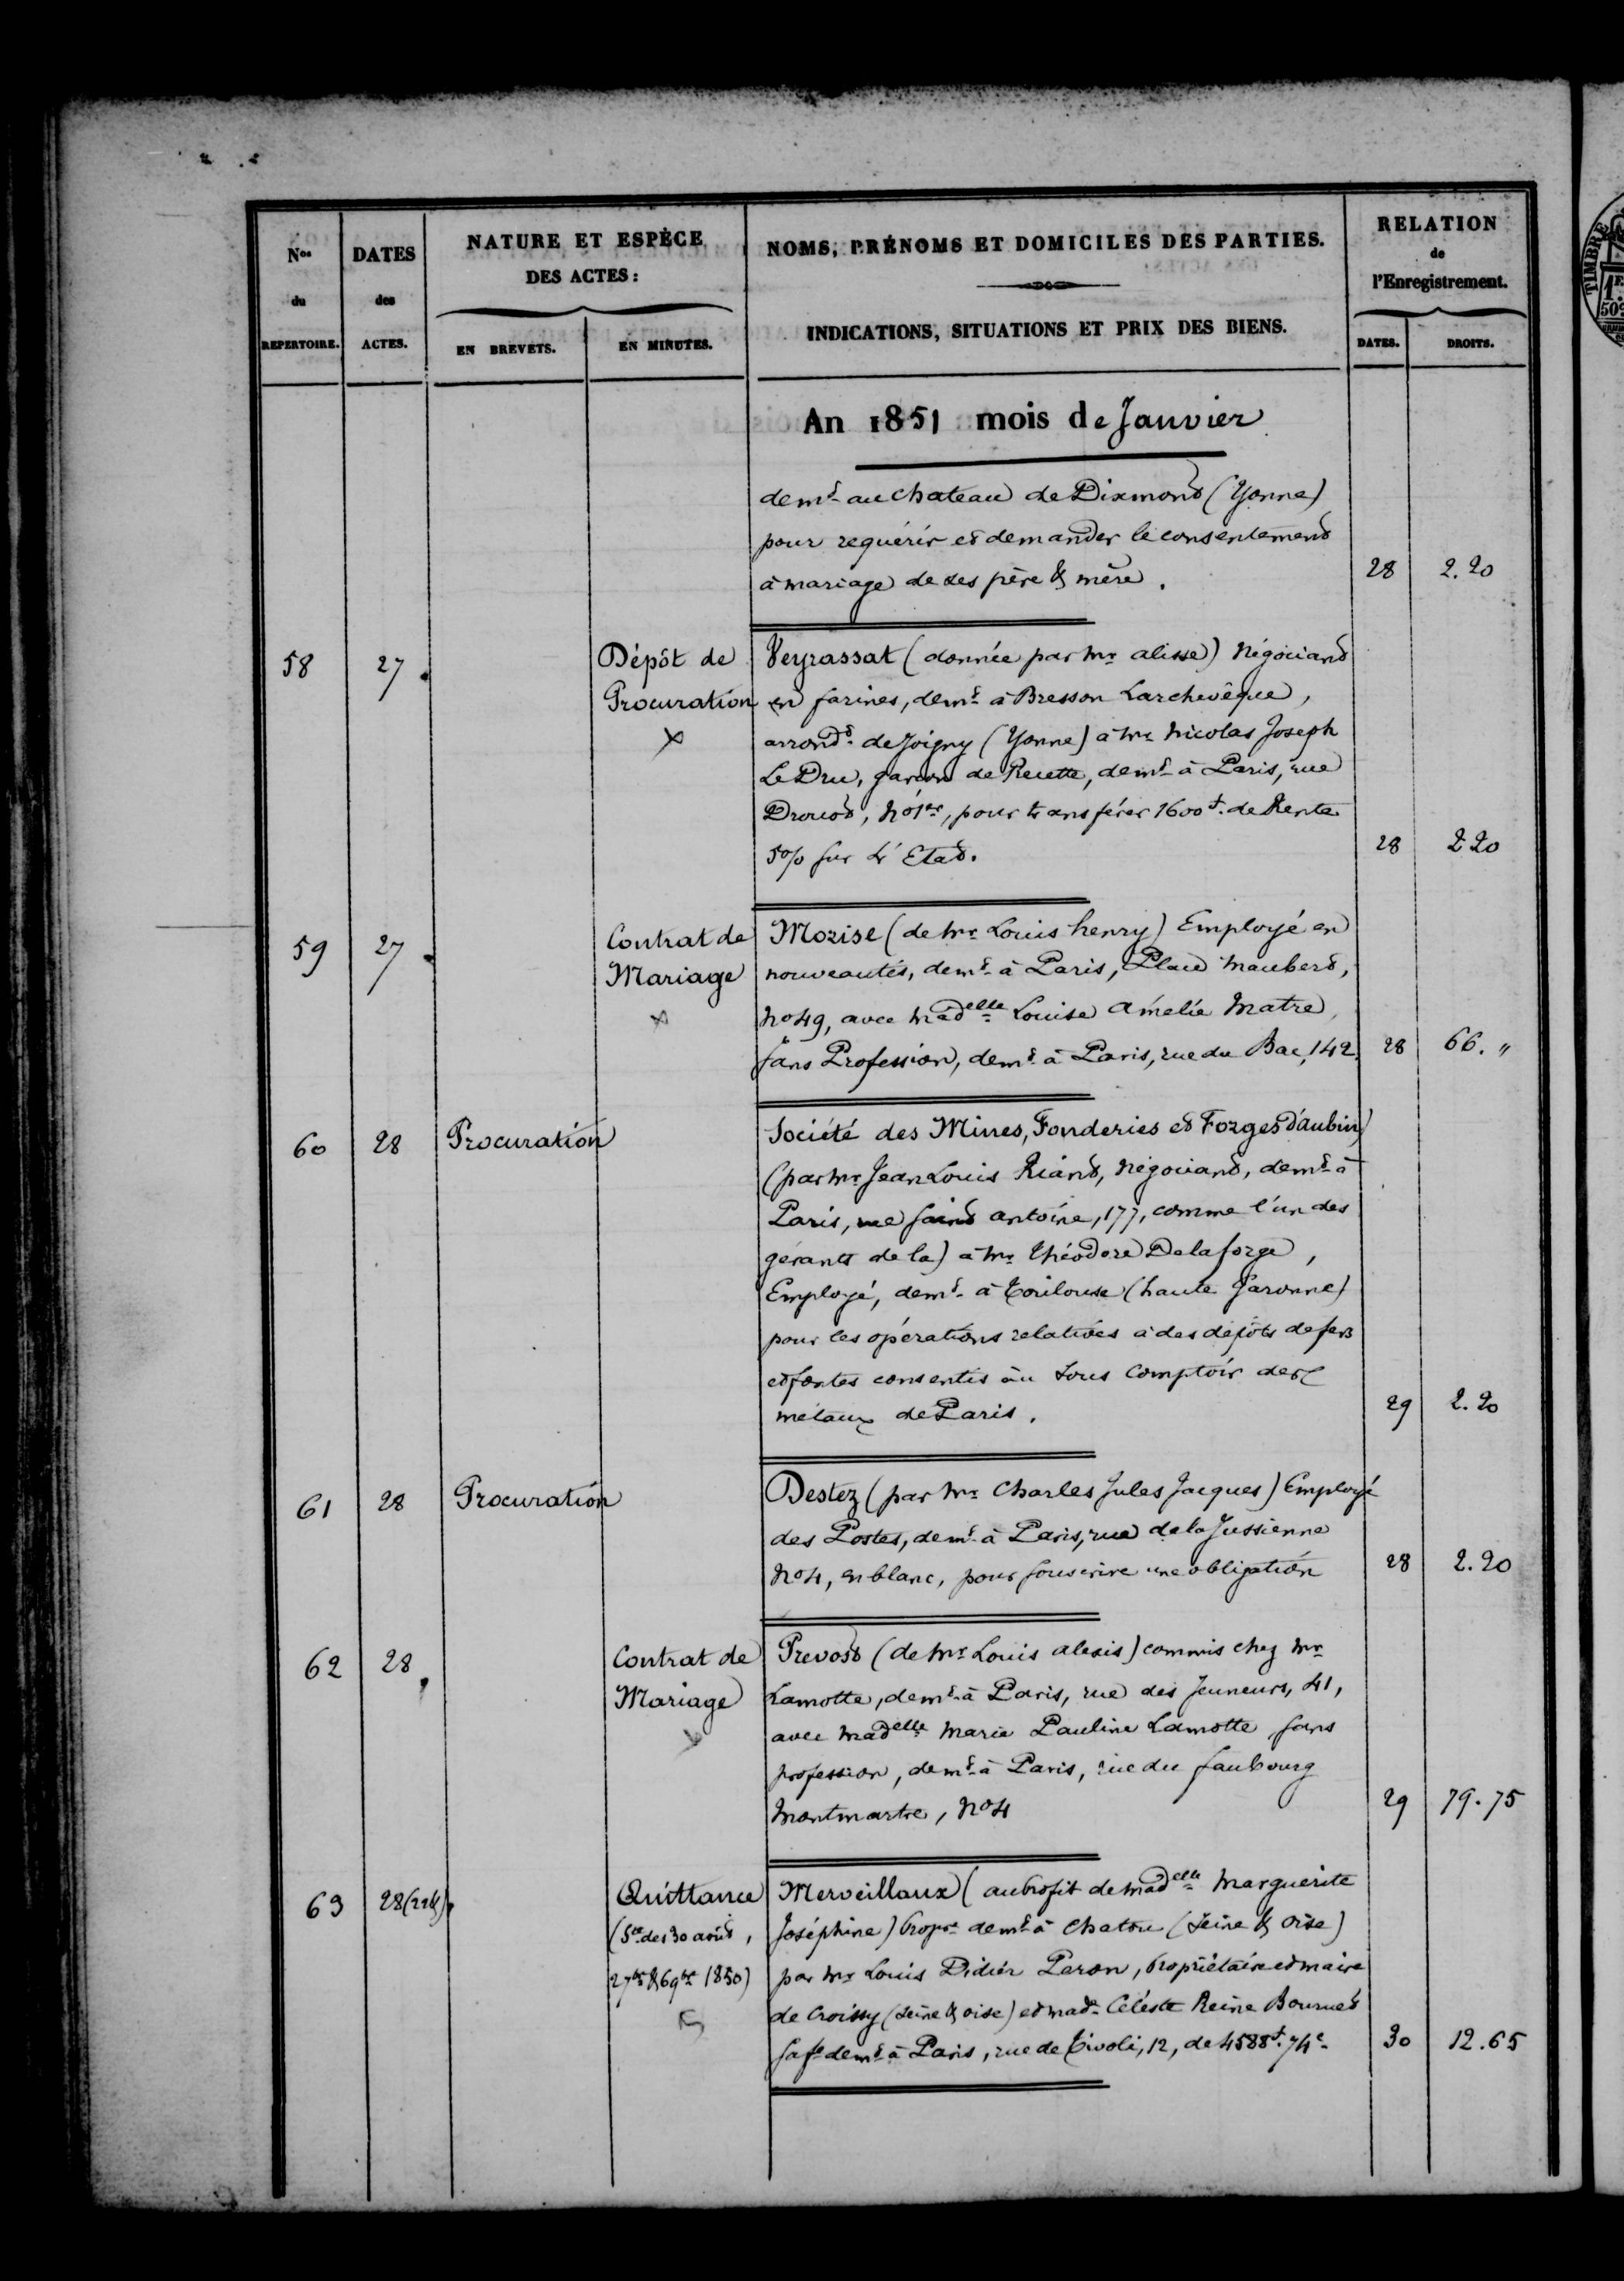 Nos du REPERTOIRE.
DATES des ACTES.
NATURE ET ESPÈCE DES ACTES:
EN BREVETS.
EN MINUTES.
NOMS, PRÉNOMS ET DOMICILES DES PARTIES.
INDICATIONS, SITUATIONS ET PRIX DES BIENS.
RELATION de l'Enregistrement.
DATES.
DROITS.
An 1851 mois de Janvier
demt au chateau de Dixmont (Yonne)
pour requérir et demander le consentement
à mariage de ses père & mère. 28 2.20
58 27. Dépôt de Veyrassat (donnée par Mr alisse) Négociant
Procuration en farines, demt à Bresson Larchevêque,
x arrondt de Joigny (Yonne) à Mr Nicolas Joseph
Le Dru, garcon de Recette, demt à Paris, rue
Drouot, No 1er, pour transférer 1600f. de Rente
5% sur L'Etat. 28 2 20
59 27. Contrat de Mozise (de Mr Louis henry) Employé en
Mariage nouveautés, demt à Paris, Place Maubert,
x No 49, avec Madelle Louise Amélie Matre,
sans Profession, demt à Paris, rue du Bac, 142. 28 66. "
60 28 Procuration Société des Mines, Fonderies et Forges d'aubin
(par Mr Jean Louis Riant, Négociant, demt à
Paris, rue saint antoine, 177, comme l'un des
gérants de la) à Mr Théodore Delaforge,
Employé, demt à Toulouse (haute Garonne)
pour les opérations relatives à des dépôts de fers
et fontes consentis au Sous Comptoir des
métaux de Paris. 29 2.20
61 28 Procuration Destez (par Mr Charles Jules Jacques) Employé
des Postes, demt à Paris, rue de la Jussienne
No 4, en blanc, pour souscrire une obligation 28 2.20
62 28. Contrat de Prevost (de Mr Louis alexis) commis chez Mr
Mariage Lamotte, demt à Paris, rue des Jeuneurs, 41,
x avec Madelle Marie Pauline Lamotte, sans
profession, demt à Paris, rue du faubourg
Montmartre, No 4 29 79.75
63 28 Quittance Merveillaux (au profit de Madelle Marguerite
(Sce des 30 août, Joséphine) propre demt à Chatou (Seine & Oise)
27bre & 6 9bre 1850) par Mr Louis Didier Peron, propriétaire et maire
de Croissy (Seine & oise) et made Céleste Reine Bournet
sa fe demt à Paris, rue de Tivoli, 12, de 4588f. 74c. 30 12.65
TIMBRE
50c